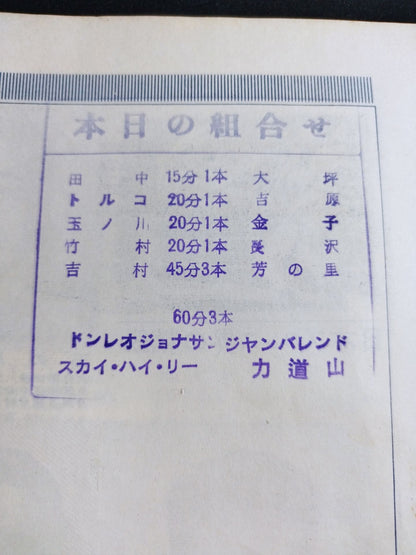 本日の組合せ
田中 15分1本 大坪
トルコ 20分1本 吉原
玉ノ川 20分1本 金子
竹村 20分1本 長沢
吉村 45分3本 芳の里
60分3本
ドンレオジョナサン ジャンバレンド
スカイ・ハイ・リー 力道山